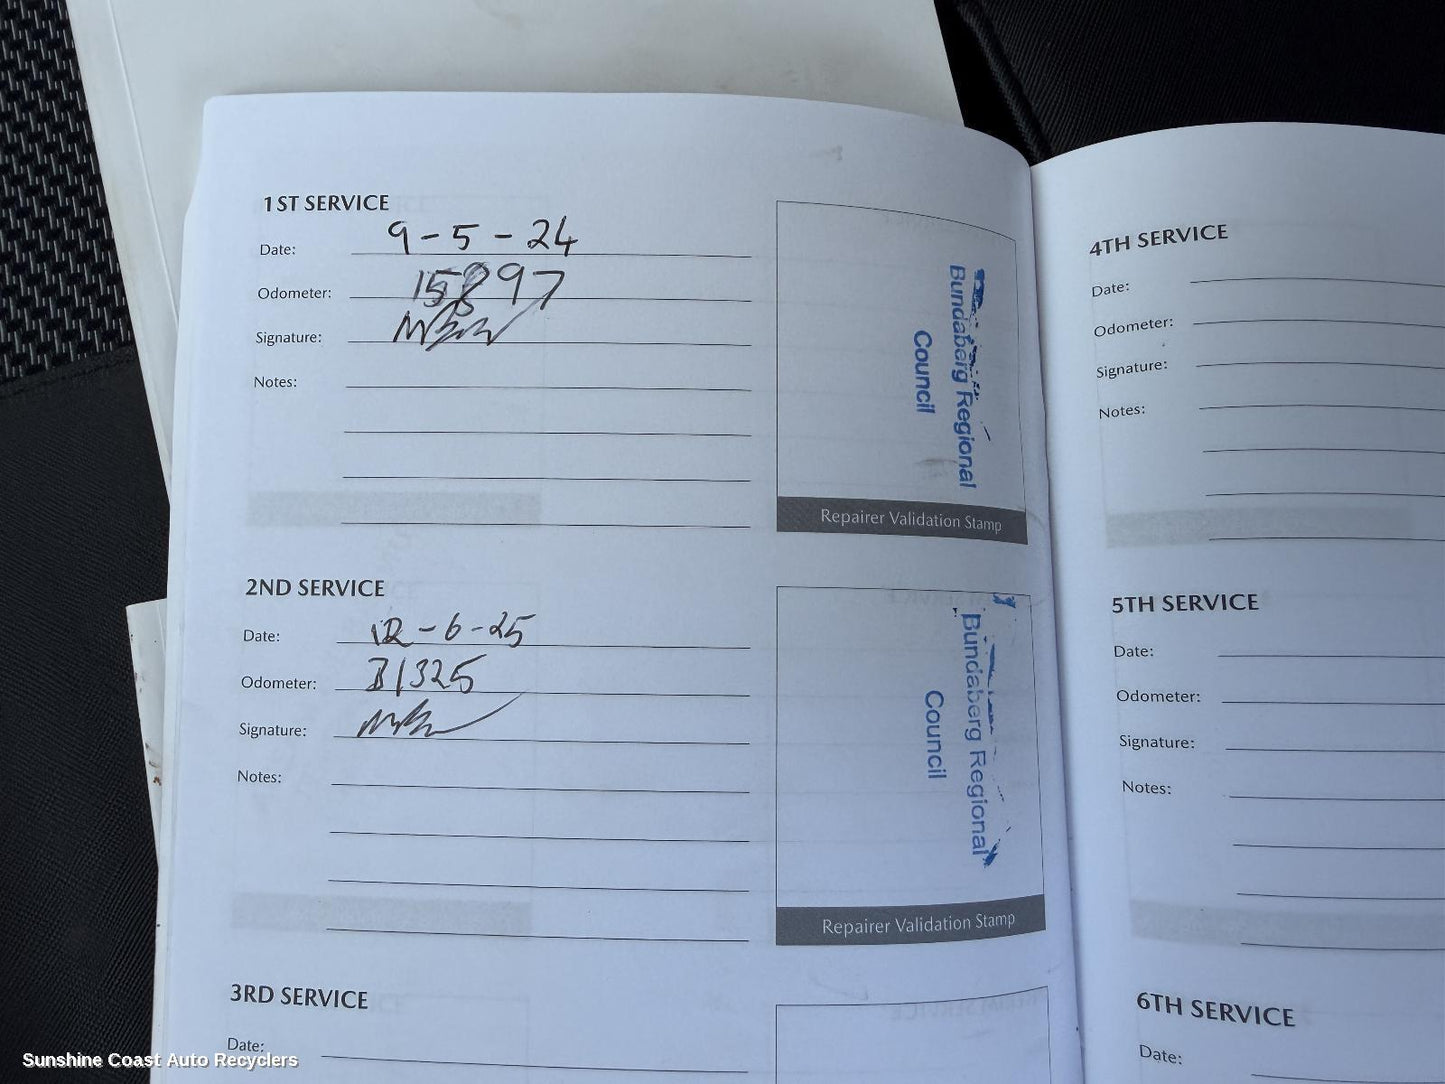 1ST SERVICE
Date: 9-5-24
Odometer: 15897
Signature:
Notes:
Bundaberg Regional
Council
Repairer Validation Stamp
2ND SERVICE
Date: 12-6-25
Odometer: 31325
Signature:
Notes:
Bundaberg Regional
Council
Repairer Validation Stamp
3RD SERVICE
Date:
4TH SERVICE
Date:
Odometer:
Signature:
Notes:
5TH SERVICE
Date:
Odometer:
Signature:
Notes:
6TH SERVICE
Date:
Sunshine Coast Auto Recyclers